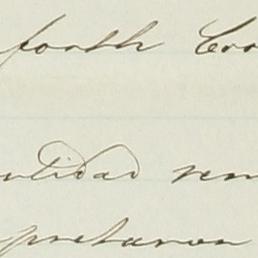 forth Coo
ntidad rem
pretaron